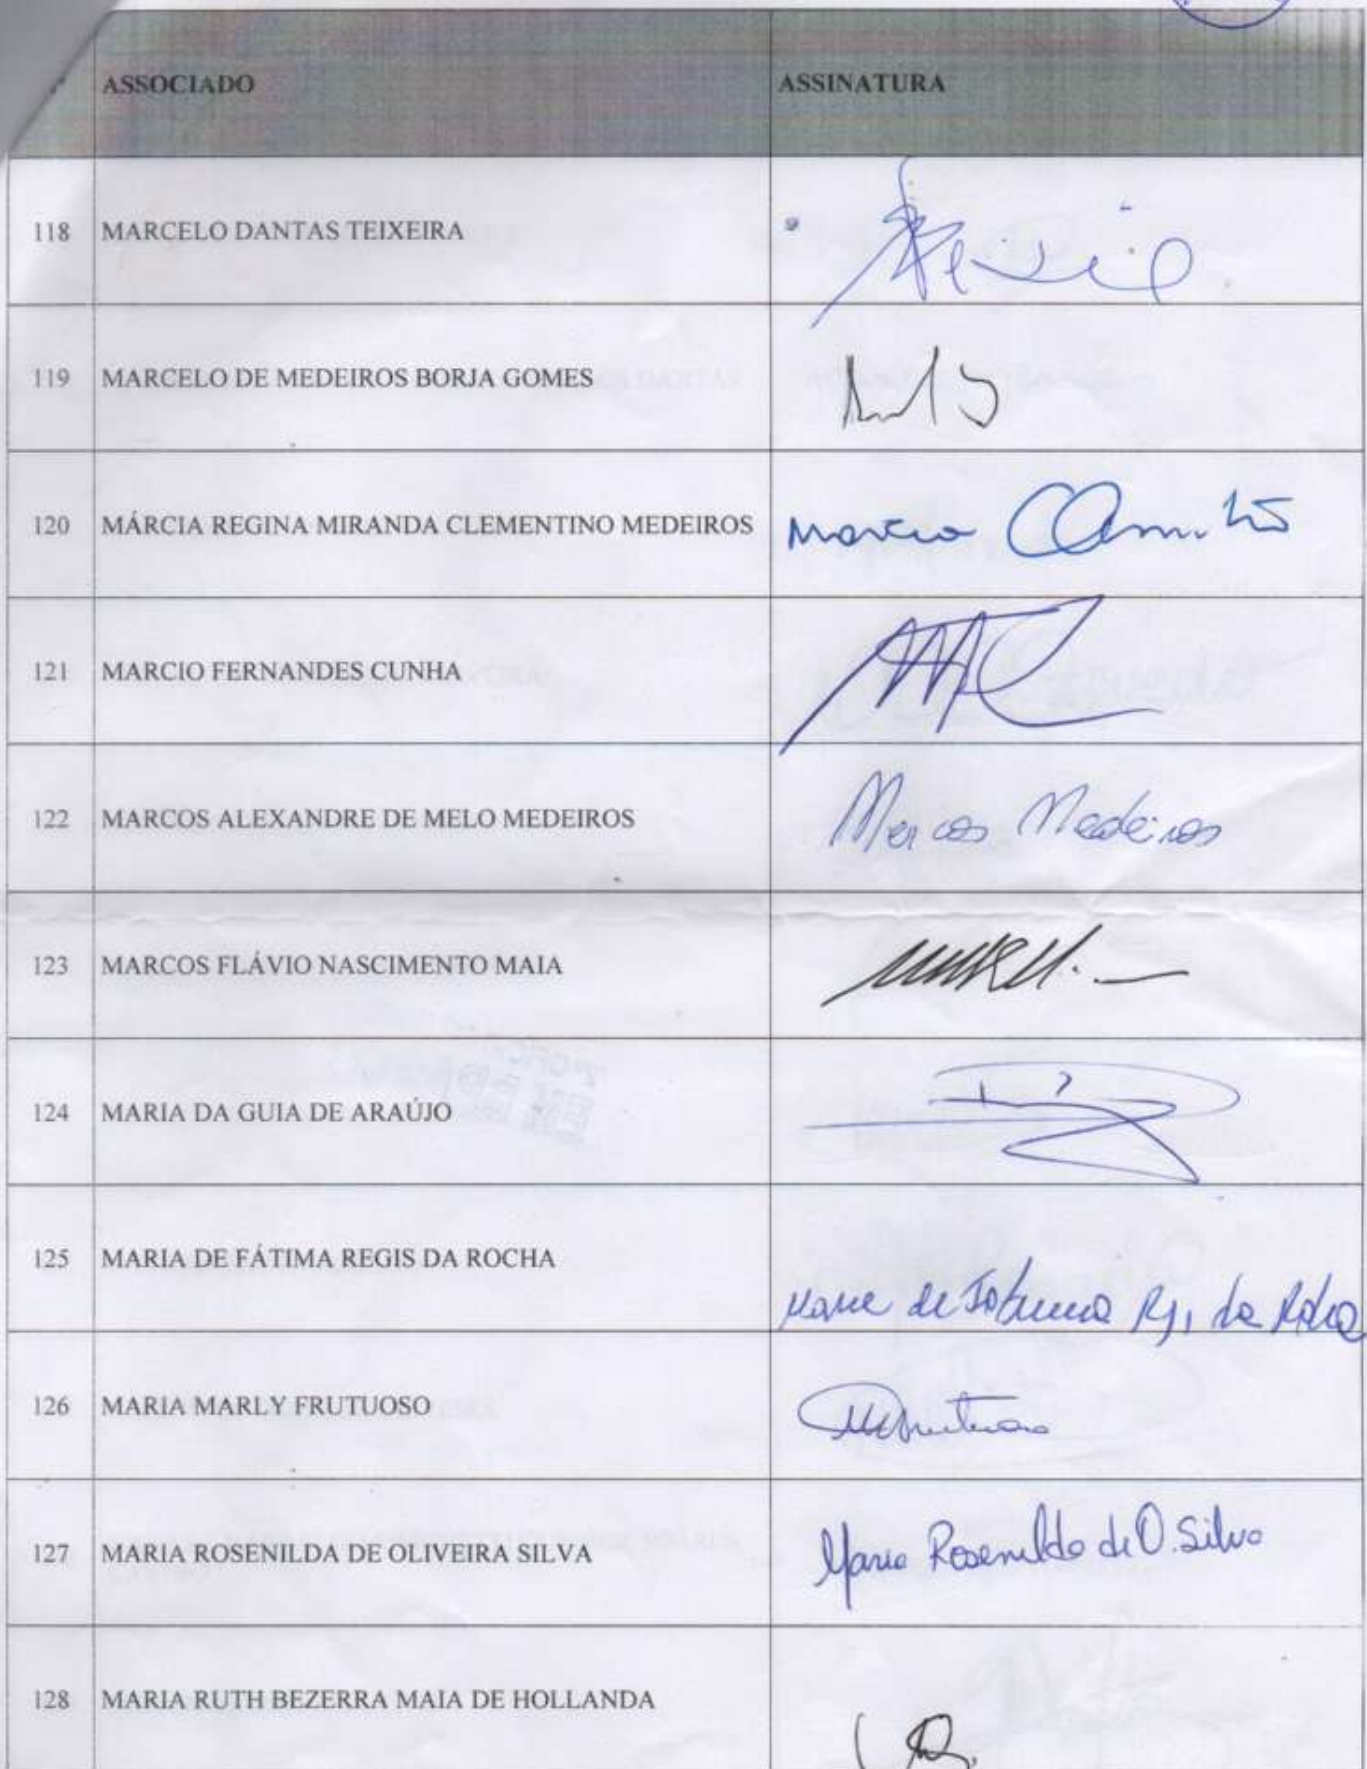 ASSOCIADO ASSINATURA
118 MARCELO DANTAS TEIXEIRA
119 MARCELO DE MEDEIROS BORJA GOMES
120 MÁRCIA REGINA MIRANDA CLEMENTINO MEDEIROS Marcia
121 MARCIO FERNANDES CUNHA
122 MARCOS ALEXANDRE DE MELO MEDEIROS Marcos Medeiros
123 MARCOS FLÁVIO NASCIMENTO MAIA
124 MARIA DA GUIA DE ARAÚJO
125 MARIA DE FÁTIMA REGIS DA ROCHA
Maria de Fatima da Rocha
126 MARIA MARLY FRUTUOSO
127 MARIA ROSENILDA DE OLIVEIRA SILVA Maria Rosenilda de O. Silva
128 MARIA RUTH BEZERRA MAIA DE HOLLANDA